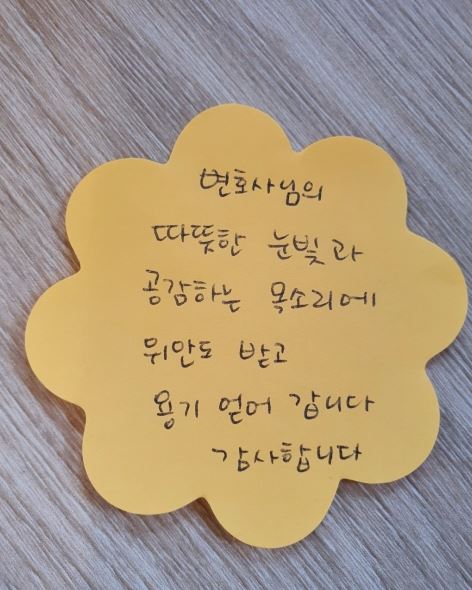 변호사님의
따뜻한 눈빛과
공감하는 목소리에
위안도 받고
용기 얻어 갑니다
감사합니다